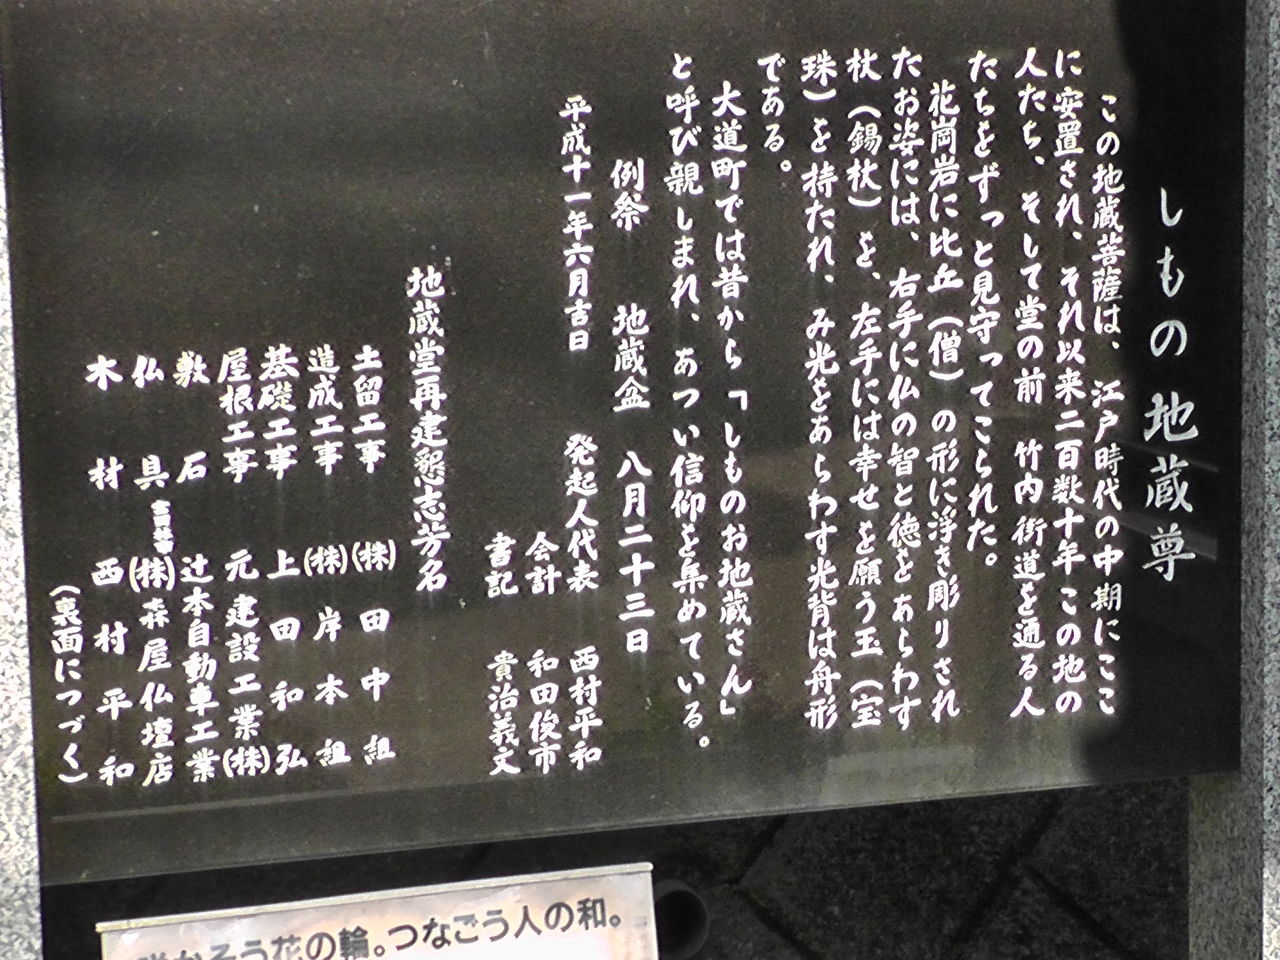 しもの地蔵尊
この地蔵菩薩は、江戸時代の中期にここ
に安置され、それ以来二百数十年この地の
人たち、そして堂の前 竹内街道を通る人
たちをずっと見守ってこられた。
花崗岩に比丘(僧)の形に浮き彫りされ
たお姿には、右手に仏の智と徳をあらわす
杖(錫杖)を、左手には幸せを願う玉(宝
珠)を持たれ、み光をあらわす光背は舟形
である。
大道町では昔から「しものお地蔵さん」
と呼び親しまれ、あつい信仰を集めている。
例祭 地蔵盆 八月二十三日
平成十一年六月吉日 発起人代表 西村平和
会計 和田俊市
書記 貴治義文
地蔵堂再建懇志芳名
土留工事 (株)田中組
造成工事 (株)岸本組
基礎工事 上田和弘
屋根工事 元建設工業(株)
敷石 辻本自動車工業
仏具 (株)森屋仏壇店
木材 西村平和
(裏面につづく)
花の輪。つなごう人の和。